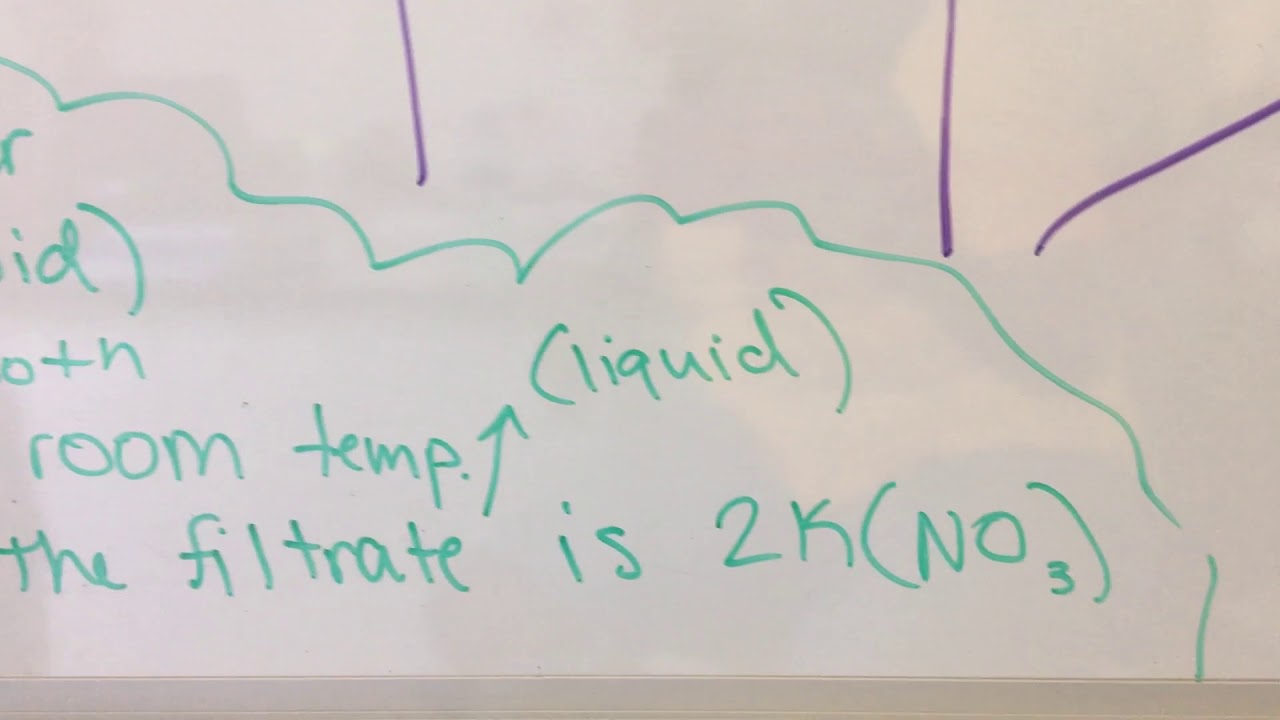 r
id)
oth
(liquid)
room temp.↑
the filtrate is 2K(NO₃)